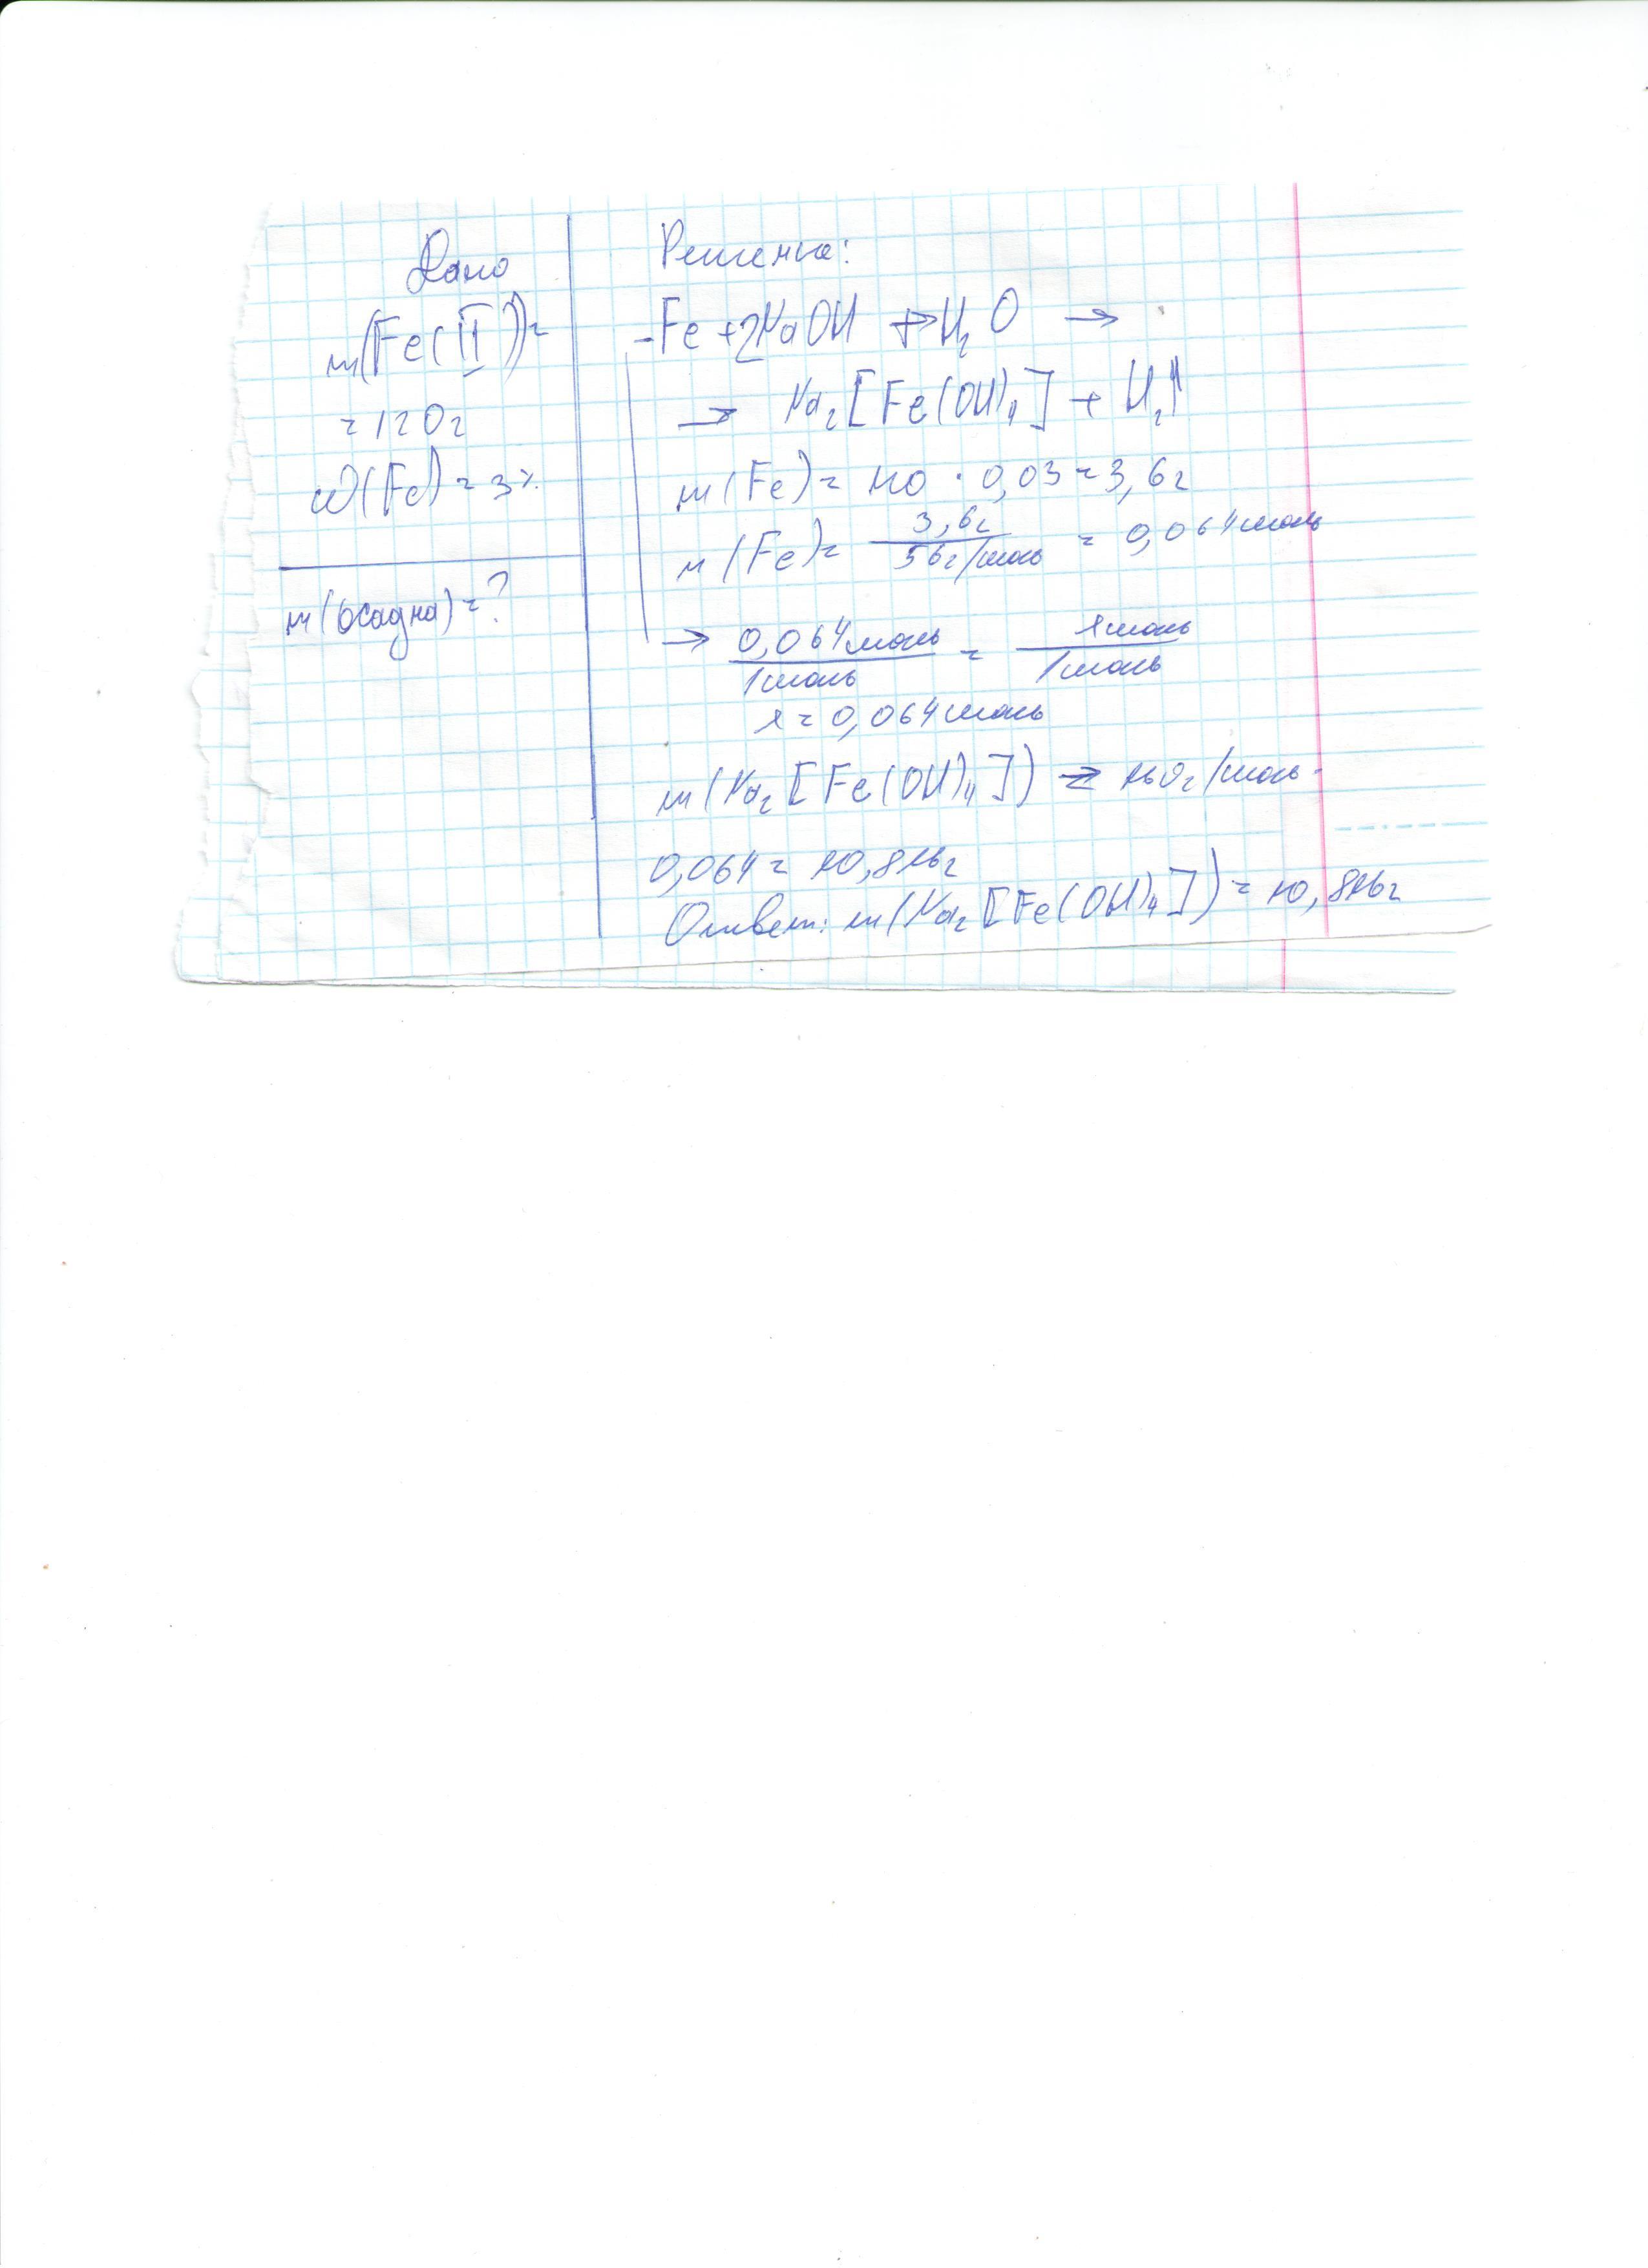 Дано
m(Fe(II))=
=120г
ω(Fe)=3%
m(осадка)=?
Решение:
Fe+2NaOH + H₂O →
→ Na₂[Fe(OH)₄] + H₂↑
m(Fe)= 120 · 0,03=3,6г
n(Fe)= 3,6г / 56г/моль = 0,064моль
→ 0,064моль / 1моль = xмоль / 1моль
x=0,064моль
m(Na₂[Fe(OH)₄]) = г/моль·
0,064= 10,816г
Ответ: m(Na₂[Fe(OH)₄])= 10,816г